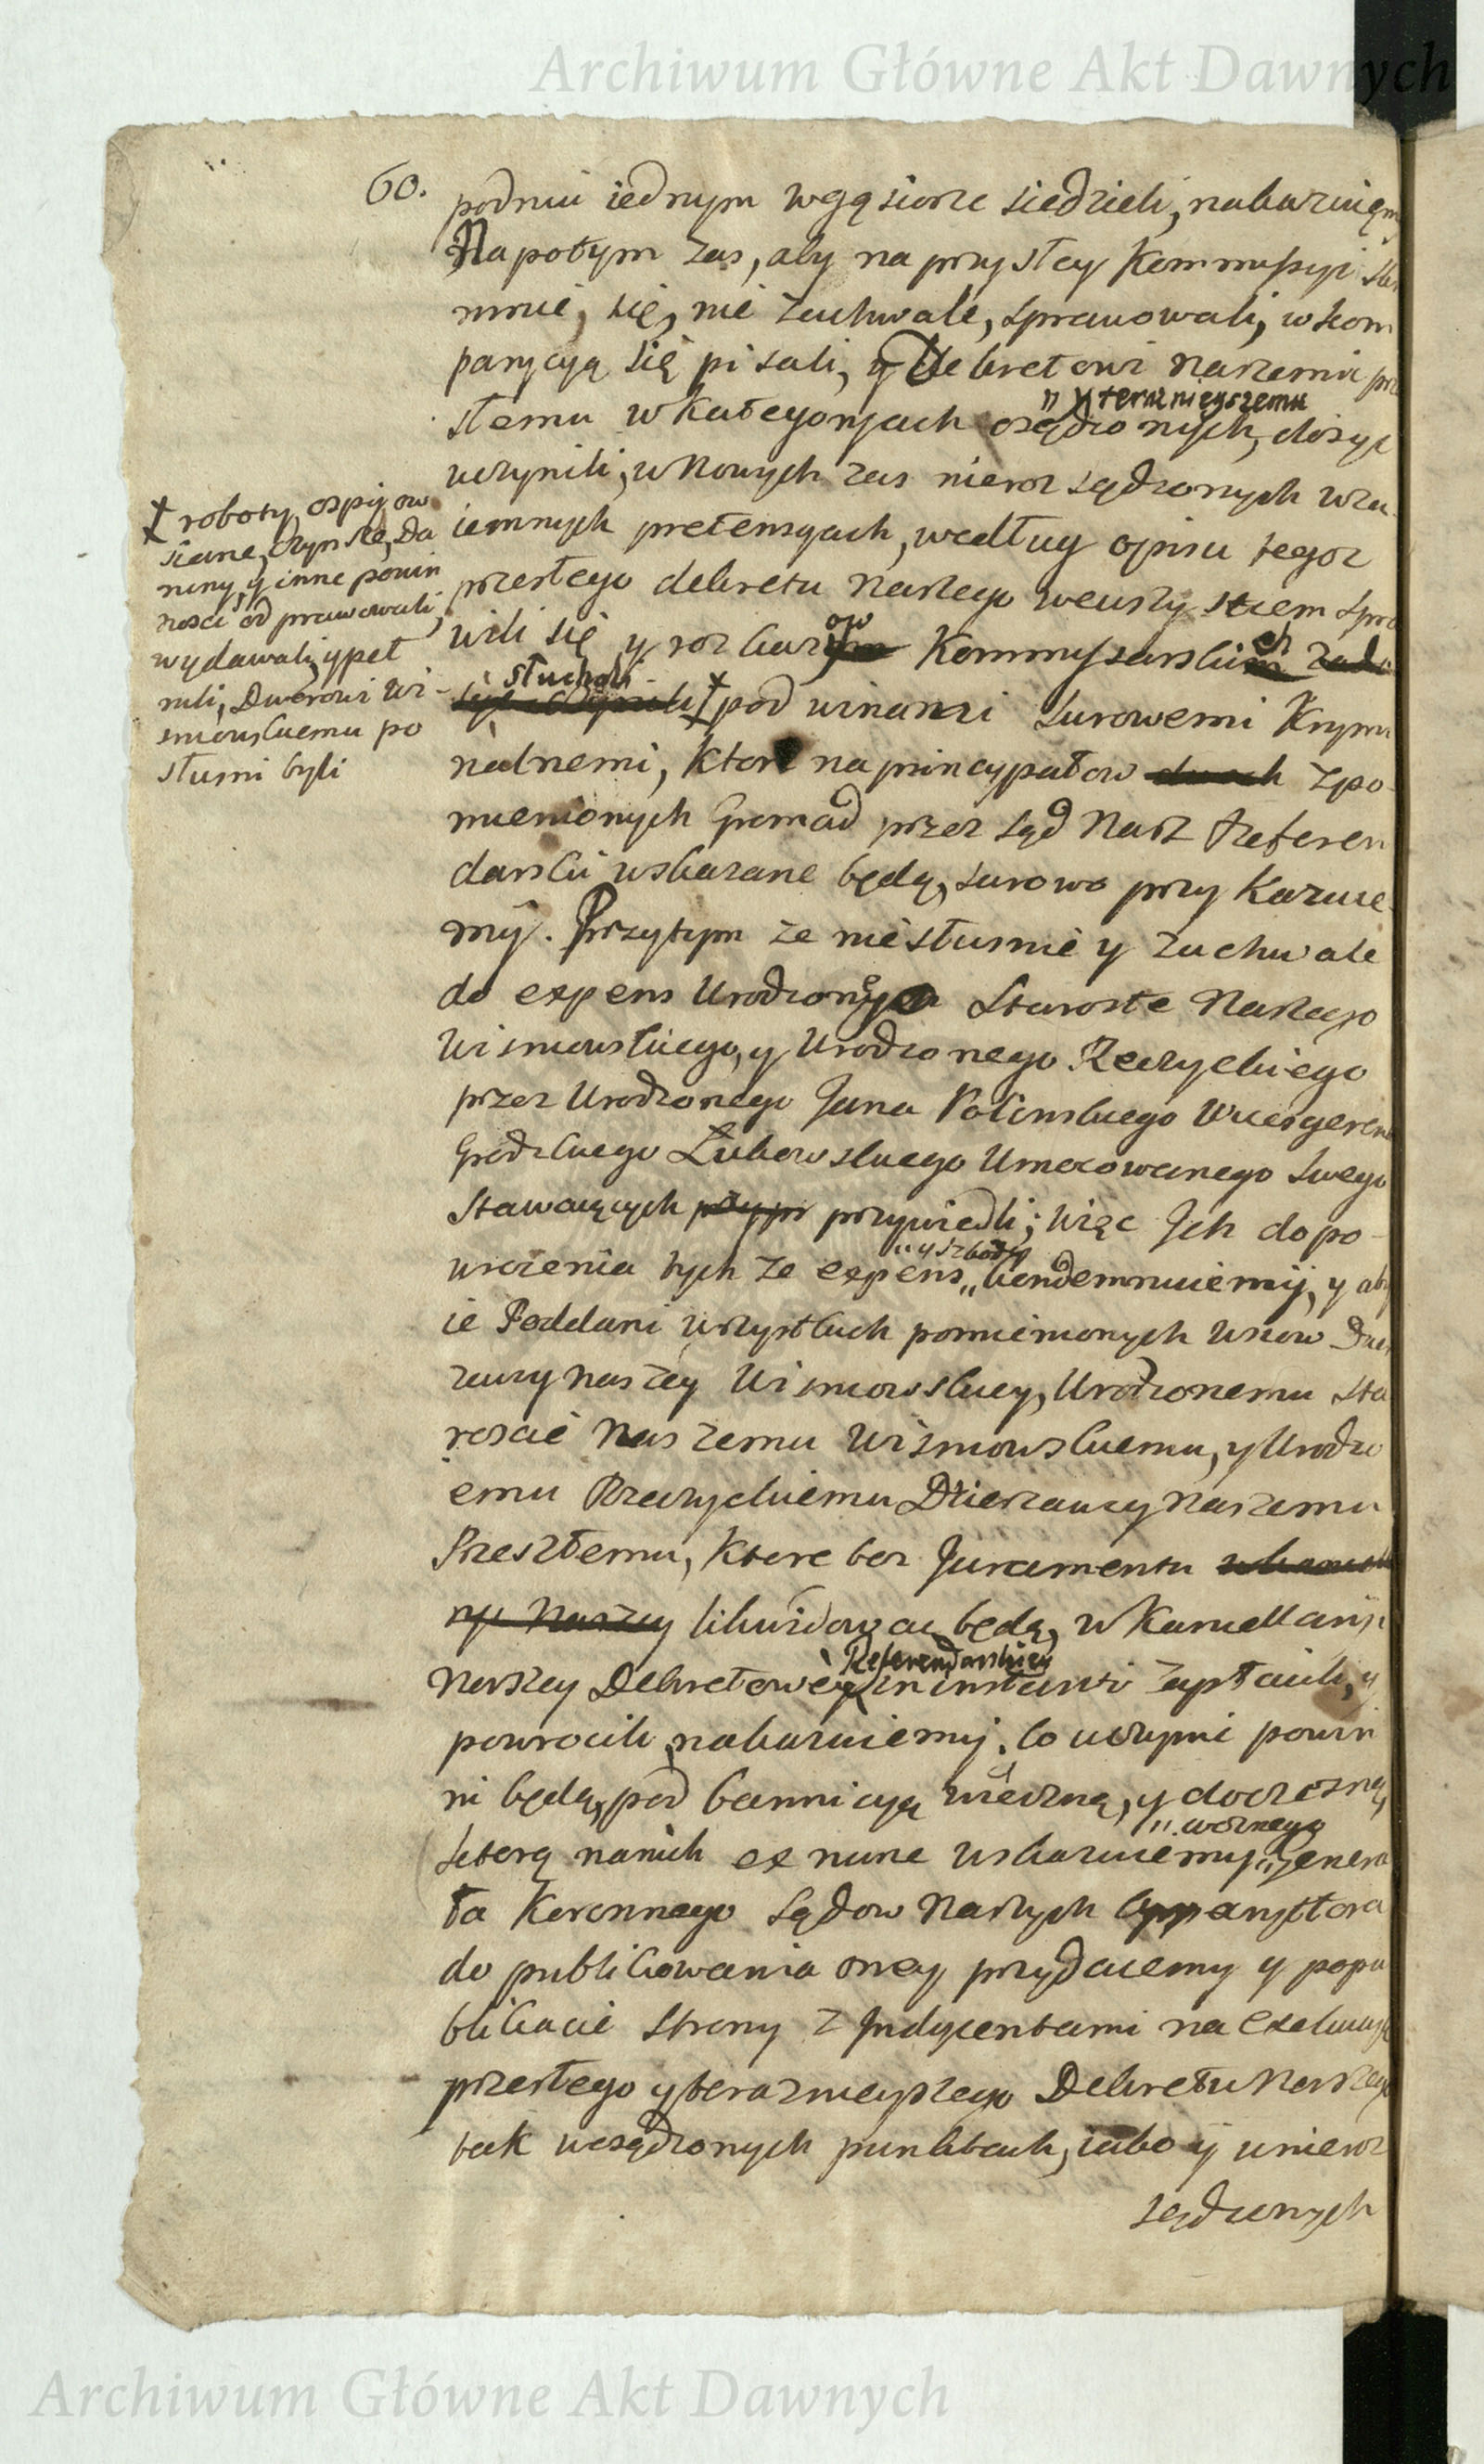 Archiwum Główne Akt Dawnych
60.
podniu iednym wgąsiorze siedzieli, nakazuięmy
Napotym zas, aby na przyszłey Kommissyi skro
mnie, się, nie zuchwale, sprawowali, w kom
parycyą się pisali, y Dekretowi naszemu prze
" y teraznieyszemu
szłemu w Kategoryach osądzonych, dosyc
uczynili, w Nowych zas nierozsądzonych wza
iemnych pretensyach, według opisu tegoz
przeszłego dekretu Naszego we wszystkiem spra
wili się y rozkazow Kommyssarskich
słuchali ł pod winami surowemi Krymi
nalnemi, Ktore na pryncypałow zpo
mienionych Gromad przez sąd Nasz Referen
darski wskazane będą, surowo przy Kazuie
my. Przytym ze niesłusznie y zuchwale
do expens Urodzonych Staroste Naszego
Wisniowskiego, y Urodzonego Rzeczyckiego
przez Urodzonego Jana Wicesgerenta
Grodzkiego Łukowskiego Umocowanego swego
Stawaiących przywiedli; więc Ich do po
" y szkody
wrocenia tych ze expens " kondemnuiemy, y aby
ie Poddani wszystkich pomienionych wsiow Dzier
zawy naszey Wisniowskiey, Urodzonemu Sta
roscie Naszemu Wisniowskiemu, y Urodzo
emu Rzeczyckiemu Dzierzawcy Naszemu
Przeszłemu, Ktore bez Juramentu
ny Naszey likwidowac będą, w Kancellaryi
Referendarskiey
Naszey Dekretowey in instanti zapłacili, y
powrocili nakazuiemy. Co uczynic powin
ni będą, pod bannicyą wieczną, y doczesną,
" woznego
ktorą nanich ex nunc wskazuiemy " genera
ła Koronnego Sądow Naszych apparyttora
do publikowania oney przydaiemy y popu
blikacie Strony z Indycentami na Exekucyą
przeszłego y teraznieyszego Dekretu Naszego
tak wosądzonych punktach, iako y wnieroz
sądzonych
ł roboty, ospy ow
siane, czynsze, Da
niny, y inne powin
nosci odprawowali,
wydawali, y peł
nili, Dworowi Wi-
sniowskiemu po
słuszni byli
Archiwum Główne Akt Dawnych